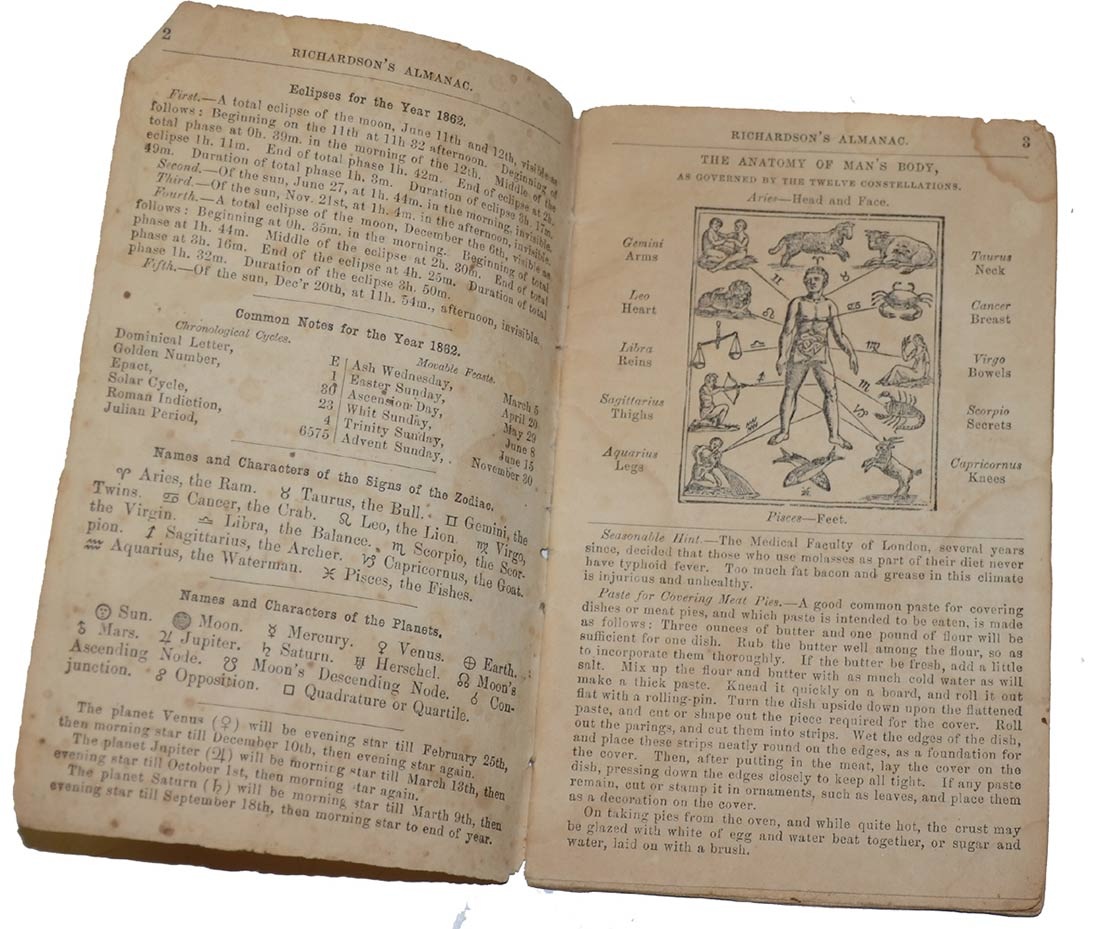 2
RICHARDSON'S ALMANAC.
Eclipses for the Year 1862.
First.—A total eclipse of the moon, June 11th and 12th, visible as
follows: Beginning on the 11th at 11h 32 afternoon. Beginning of
total phase at 0h. 39m. in the morning of the 12th. Middle of the
eclipse 1h. 11m. End of total phase 1h. 42m. End of eclipse at 2h.
49m. Duration of total phase 1h. 3m. Duration of eclipse 3h. 17m.
Second.—Of the sun, June 27, at 1h. 44m. in the morning, invisible.
Third.—Of the sun, Nov. 21st, at 1h. 4m. in the afternoon, invisible.
Fourth.—A total eclipse of the moon, December the 6th, visible as
follows: Beginning at 0h. 35m. in the morning. Beginning of total
phase at 1h. 44m. Middle of the eclipse at 2h. 30m. End of total
phase at 3h. 16m. End of the eclipse at 4h. 25m. Duration of total
phase 1h. 32m. Duration of the eclipse 3h. 50m.
Fifth.—Of the sun, Dec'r 20th, at 11h. 54m., afternoon, invisible.
Common Notes for the Year 1862.
Chronological Cycles.
Dominical Letter, E
Golden Number, 1
Epact, 30
Solar Cycle, 23
Roman Indiction, 4
Julian Period, 6575
Movable Feasts.
Ash Wednesday, March 5
Easter Sunday, April 20
Ascension Day, May 29
Whit Sunday, June 8
Trinity Sunday, June 15
Advent Sunday, . November 30
Names and Characters of the Signs of the Zodiac.
♈ Aries, the Ram. ♉ Taurus, the Bull. ♊ Gemini, the
Twins. ♋ Cancer, the Crab. ♌ Leo, the Lion. ♍ Virgo,
the Virgin. ♎ Libra, the Balance. ♏ Scorpio, the Scor-
pion. ♐ Sagittarius, the Archer. ♑ Capricornus, the Goat.
♒ Aquarius, the Waterman. ♓ Pisces, the Fishes.
Names and Characters of the Planets.
☉ Sun. Moon. ☿ Mercury. ♀ Venus. ⊕ Earth.
♂ Mars. ♃ Jupiter. ♄ Saturn. ♅ Herschel. ☊ Moon's
Ascending Node. ☋ Moon's Descending Node. ☌ Con-
junction. ☍ Opposition. □ Quadrature or Quartile.
The planet Venus (♀) will be evening star till February 25th,
then morning star till December 10th, then evening star again.
The planet Jupiter (♃) will be morning star till March 13th, then
evening star till October 1st, then morning star again.
The planet Saturn (♄) will be morning star till Marth 9th, then
evening star till September 18th, then morning star to end of year.
RICHARDSON'S ALMANAC.
3
THE ANATOMY OF MAN'S BODY,
AS GOVERNED BY THE TWELVE CONSTELLATIONS.
Aries—Head and Face.
Gemini
Arms
Leo
Heart
Libra
Reins
Sagittarius
Thighs
Aquarius
Legs
♈
♊
♉
♌
♋
♎
♍
♐
♏
♒
♑
♓
Taurus
Neck
Cancer
Breast
Virgo
Bowels
Scorpio
Secrets
Capricornus
Knees
Pisces—Feet.
Seasonable Hint.—The Medical Faculty of London, several years
since, decided that those who use molasses as part of their diet never
have typhoid fever. Too much fat bacon and grease in this climate
is injurious and unhealthy.
Paste for Covering Meat Pies.—A good common paste for covering
dishes or meat pies, and which paste is intended to be eaten, is made
as follows: Three ounces of butter and one pound of flour will be
sufficient for one dish. Rub the butter well among the flour, so as
to incorporate them thoroughly. If the butter be fresh, add a little
salt. Mix up the flour and butter with as much cold water as will
make a thick paste. Knead it quickly on a board, and roll it out
flat with a rolling-pin. Turn the dish upside down upon the flattened
paste, and cut or shape out the piece required for the cover. Roll
out the parings, and cut them into strips. Wet the edges of the dish,
and place these strips neatly round on the edges, as a foundation for
the cover. Then, after putting in the meat, lay the cover on the
dish, pressing down the edges closely to keep all tight. If any paste
remain, cut or stamp it in ornaments, such as leaves, and place them
as a decoration on the cover.
On taking pies from the oven, and while quite hot, the crust may
be glazed with white of egg and water beat together, or sugar and
water, laid on with a brush.